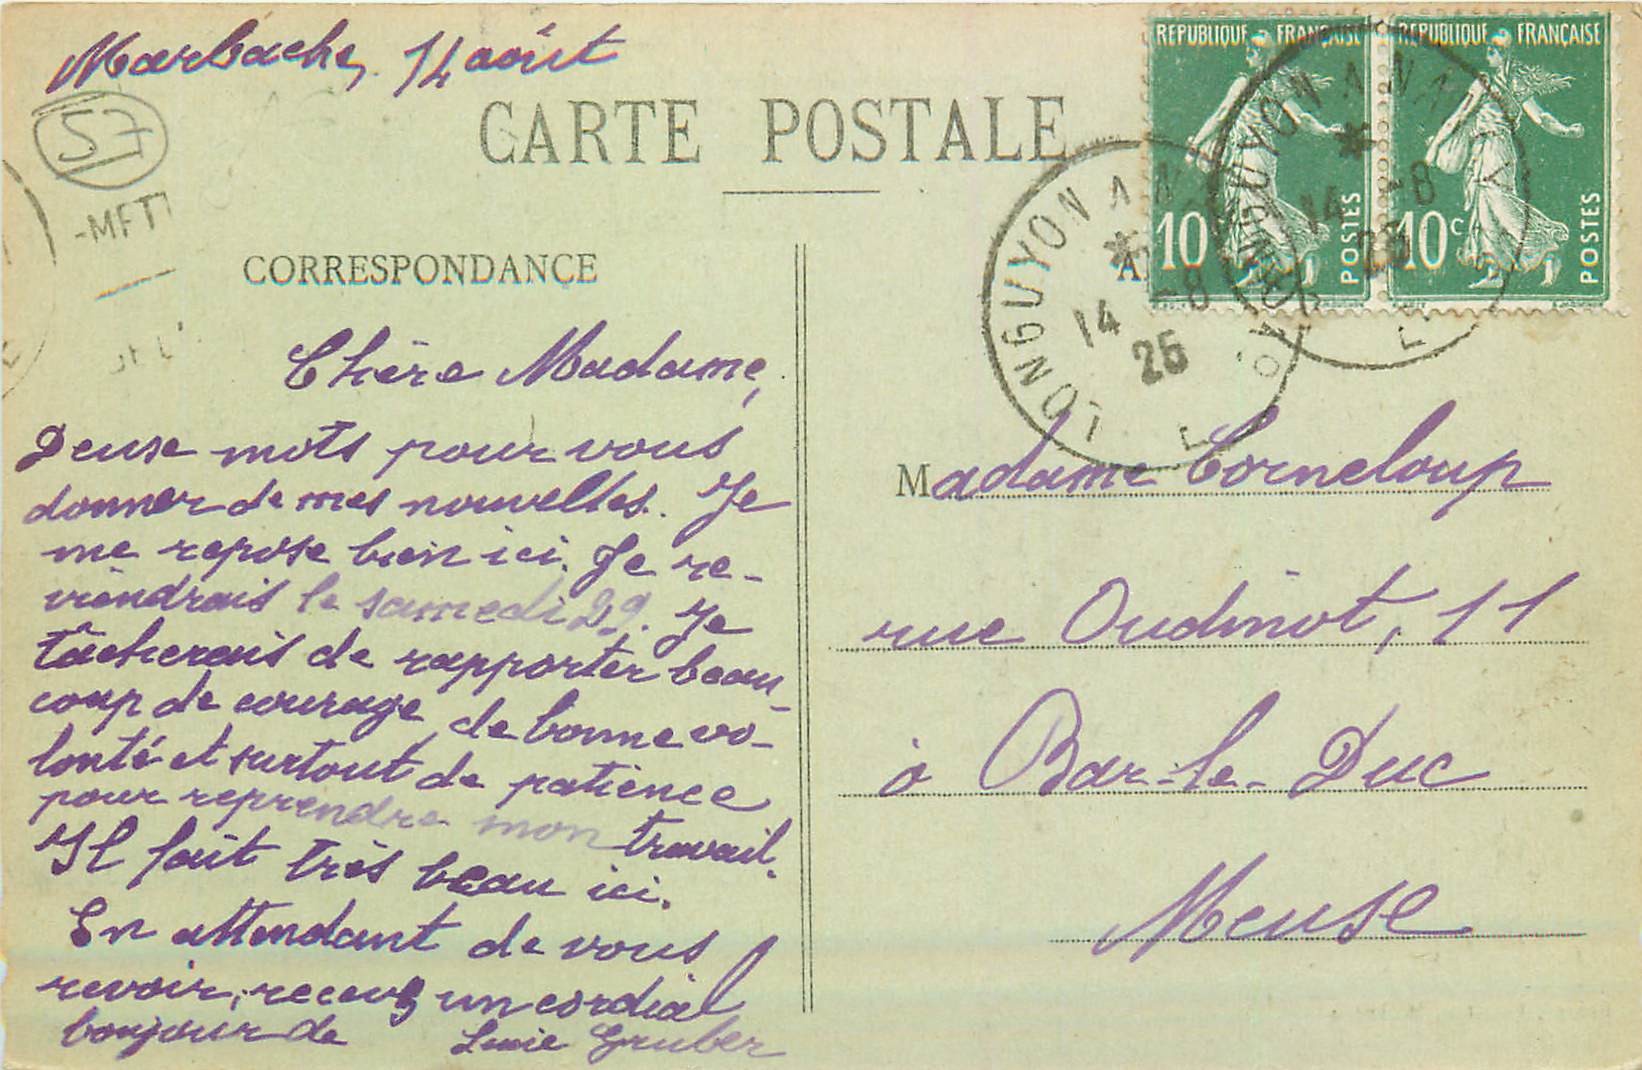 Marbache, 14 août
57
-MFTT
CARTE POSTALE
RÉPUBLIQUE FRANÇAISE
10
POSTES
RÉPUBLIQUE FRANÇAISE
10c
POSTES
LONGUYON A NANCY
14 -8
25
LONGUYON A NANCY
14 -8
25
CORRESPONDANCE
Chère Madame,
Deuse mots pour vous
donner de mes nouvelles. Je
me repose bien ici. Je re-
viendrais le samedi 29. Je
tâcherais de rapporter beau-
coup de courage, de bonne vo-
lonté et surtout de patience
pour reprendre mon travail.
Il fait très beau ici.
En attendant de vous
revoir, recevez un cordial
bonjour de Lucie Gruber
Madame Corneloup
rue Oudinot, 11
à Bar-le-Duc
Meuse